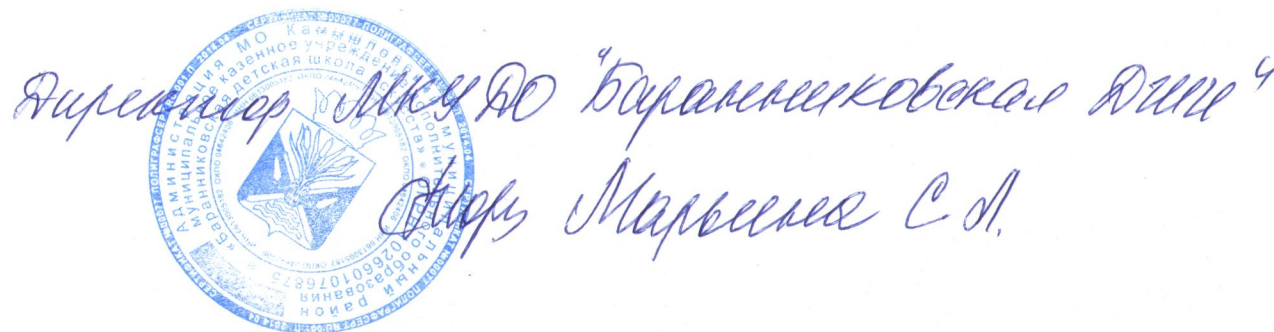 Директор МКУ ДО "Баранниковская ДШИ"
Марьина С.А.
Администрация МО Камышловский муниципальный район
Муниципальное казенное учреждение дополнительного образования
«Баранниковская детская школа искусств»